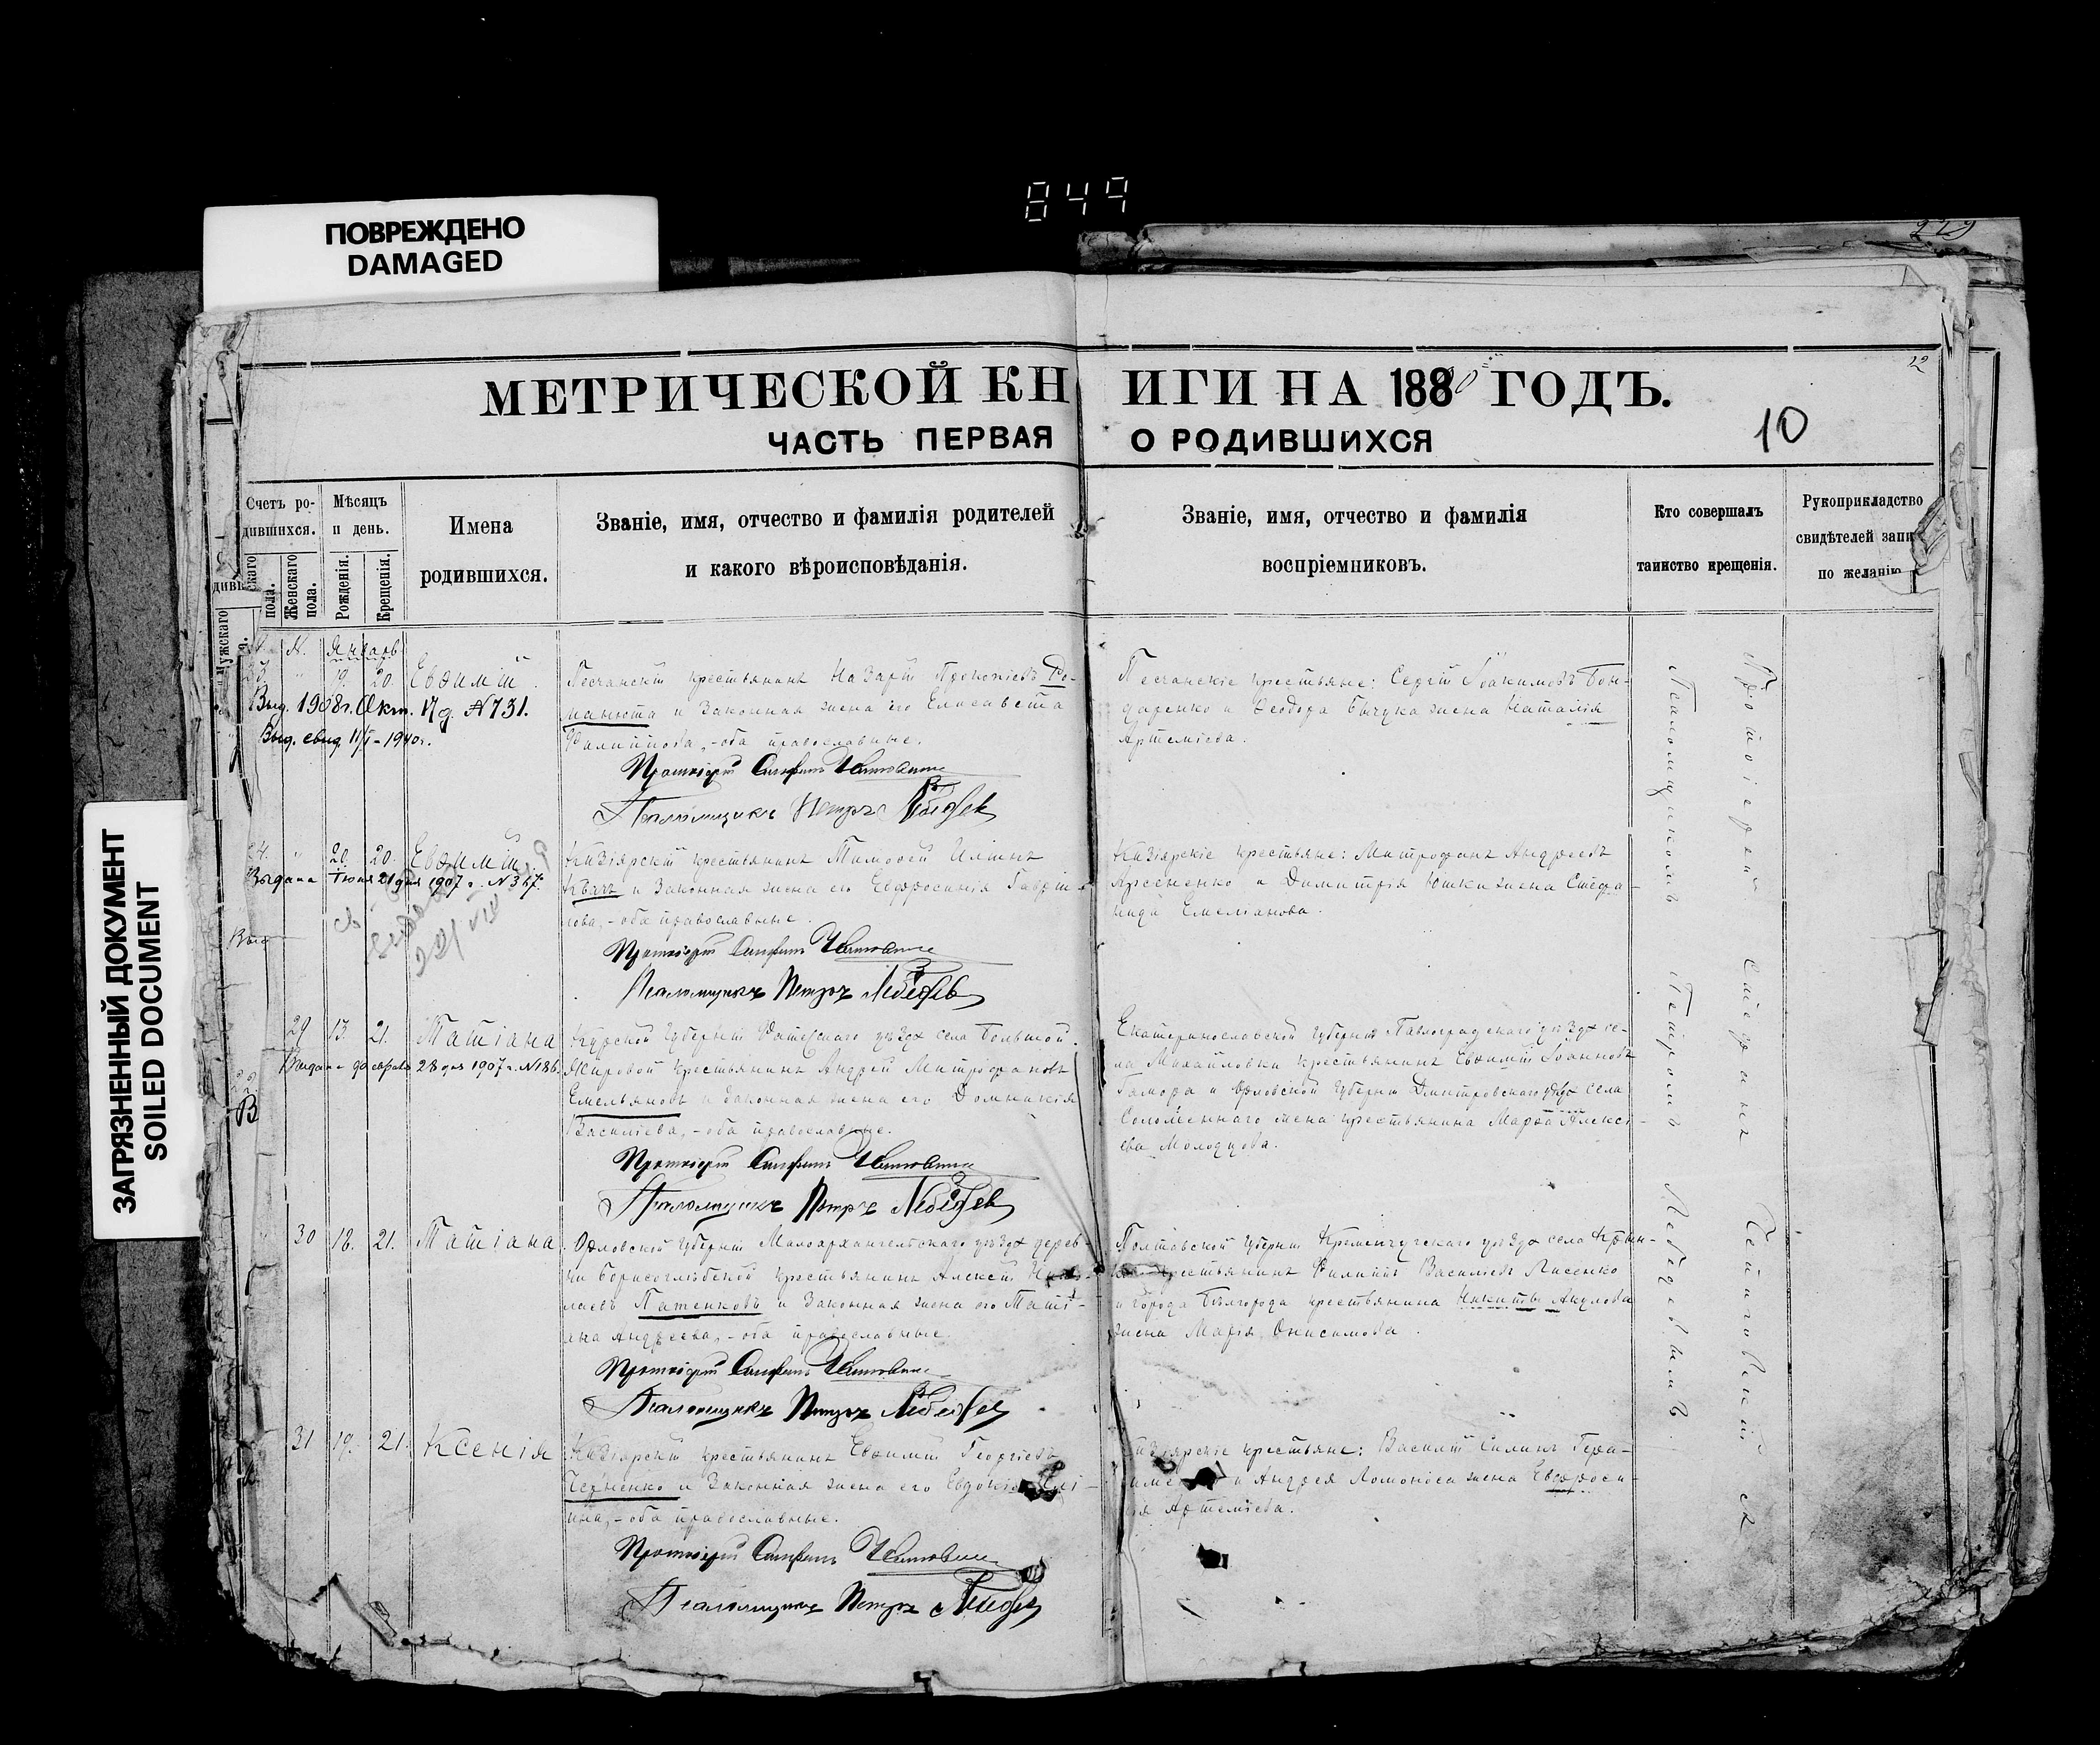 849
ПОВРЕЖДЕНО
DAMAGED
ЗАГРЯЗНЕННЫЙ ДОКУМЕНТ
SOILED DOCUMENT
229
12
МЕТРИЧЕСКОЙ КНИГИ НА 1880 ГОДЪ.
10
ЧАСТЬ ПЕРВАЯ О РОДИВШИХСЯ
Счетъ ро-
дившихся.
Мѣсяцъ
и день.
Имена
родившихся.
Званіе, имя, отчество и фамилія родителей
и какого вѣроисповѣданія.
Званіе, имя, отчество и фамилія
воспріемниковъ.
Кто совершалъ
таинство крещенія.
Рукоприкладство
свидѣтелей запи
по желанію
Мужскаго
пола.
Женскаго
пола.
Рожденія.
Крещенія.
М. Январь
19. 20. Евѳимій.
Выд. 1908 г. Окт. 17 д. №731.
Выд. свид. 11/I - 1940 г.
Песчанскій крестьянинъ Назарій Прокопіевъ Ро-
манюта и законная жена его Елисавета
Филиппова, - оба православные.
Протоіерей Стефанъ
Псаломщикъ Петръ Лебедевъ
Песчанскіе крестьяне: Сергій Іоакимовъ Бон-
даренко и Ѳеодора Бычука жена Наталія
Артеміева.
24. " 20. 20. Евѳимій
Выдана Іюня 21 дня 1907 г. №367.
Выд
Кизіярскій крестьянинъ Тимоѳей Иліинъ
Квачъ и законная жена его Евфросинія Гаврі-
лова, - оба православные.
Протоіерей Стефанъ
Псаломщикъ Петръ Лебедевъ
Кизіярскіе крестьяне: Митрофанъ Андреевъ
Арсененко и Димитрія Юшки жена Стефа-
нида Емеліанова.
29 13. 21. Татіана
Выдана февраля 28 дня 1907 г. №186.
Курской губерніи Фатежскаго уѣзда села Большой
Жировой крестьянинъ Андрей Митрофановъ
Емельяновъ и законная жена его Домникія
Василіева, - оба православные.
Протоіерей Стефанъ
Псаломщикъ Петръ Лебедевъ
Екатеринославской губерніи Павлоградскаго уѣзда се-
ла Михайловки крестьянинъ Евѳимій Іоанновъ
Гамора и Орловской губерніи Дмитровскаго уѣзда села
Соломеннаго жена крестьянина Марѳа Алексі-
ева Молодцова.
30 18. 21. Татіана
Орловской губерніи Малоархангельскаго уѣзда дерев-
ни Борисоглѣбской крестьянинъ Алексій Нико-
лаевъ Патенковъ и законная жена его Таті-
ана Андреева, - оба православные.
Протоіерей Стефанъ
Псаломщикъ Петръ Лебедевъ
Полтавской губерніи Кременчугскаго уѣзда села
крестьянинъ Филиппъ Василіевъ Лисенко
и города Бѣлгорода крестьянина Никиты Акулова
жена Марія Онисимова.
31 19. 21. Ксенія
Кизіярскій крестьянинъ Евѳимій Георгіевъ
Черненко и законная жена его Евдокія
ина, - оба православные.
Протоіерей Стефанъ
Псаломщикъ Петръ Лебедевъ
Кизіярскіе крестьяне: Василій Силинъ Гера-
и Андрея Ломоноса жена Евфроси-
ія Артеміева.
Протоіерей Стефанъ
Псаломщикомъ Петромъ Лебедевымъ.